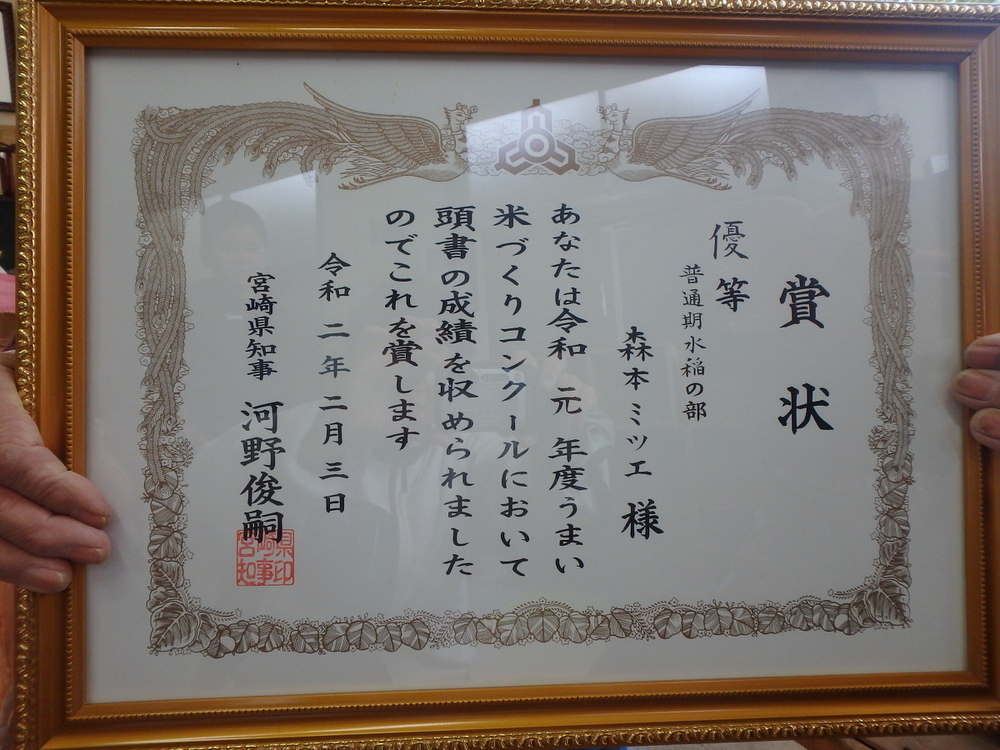 賞状
優等
普通期水稲の部
森本ミツエ様
あなたは令和元年度うまい
米づくりコンクールにおいて
頭書の成績を収められました
のでこれを賞します
令和二年二月三日
宮崎県知事 河野俊嗣
宮崎県知事印